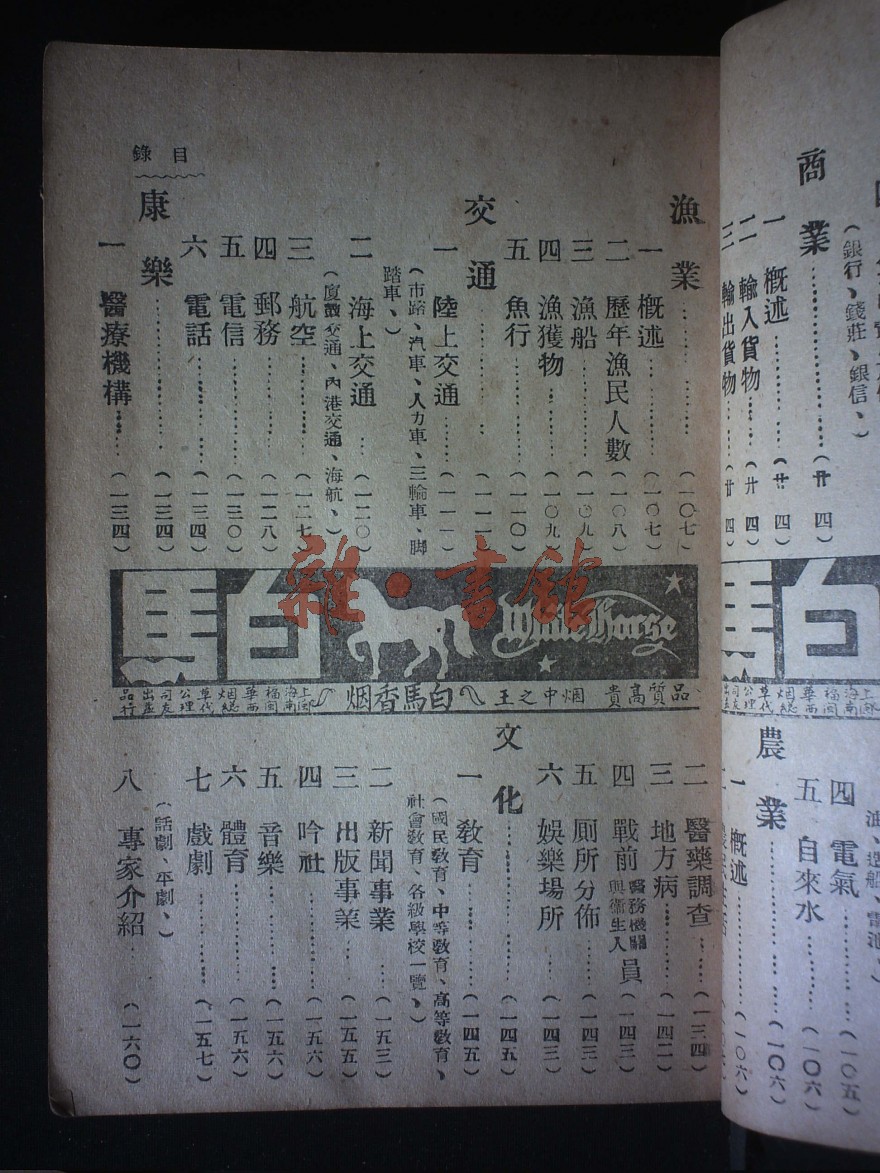 商業……(廿四)
一 概述……(廿四)
二 輸入貨物……(廿四)
三 輸出貨物……(廿四)
(銀行、錢莊、銀信、)
四 電氣……(一〇五)
五 自來水……(一〇六)
農業……(一〇六)
一 概述……(一〇六)
目錄
漁業……(一〇七)
一 概述……(一〇七)
二 歷年漁民人數(一〇八)
三 漁船……(一〇九)
四 漁獲物……(一〇九)
五 魚行……(一一〇)
交通……(一一一)
一 陸上交通……(一一一)
(市路、汽車、人力車、三輪車、脚
踏車、)
二 海上交通…(一二〇)
(廈鼓交通、內港交通、海航、)
三 航空……(一二七)
四 郵務……(一二八)
五 電信……(一三〇)
六 電話……(一三四)
康樂……(一三四)
一 醫療機構……(一三四)
白馬
White Horse
品質高貴 烟中之王
白馬香烟
上海福華烟草公司出品
二 醫藥調查……(一三四)
三 地方病……(一四二)
四 戰前醫務機關與衞生人員(一四三)
五 厠所分佈……(一四三)
六 娛樂場所……(一四三)
文化……(一四五)
一 教育……(一四五)
(國民教育、中等教育、高等教育、
社會教育、各級學校一覽、)
二 新聞事業……(一五三)
三 出版事業…(一五五)
四 吟社……(一五六)
五 音樂……(一五六)
六 體育……(一五六)
七 戲劇……(一五七)
(話劇、平劇、)
八 專家介紹…(一六〇)
雜·書館